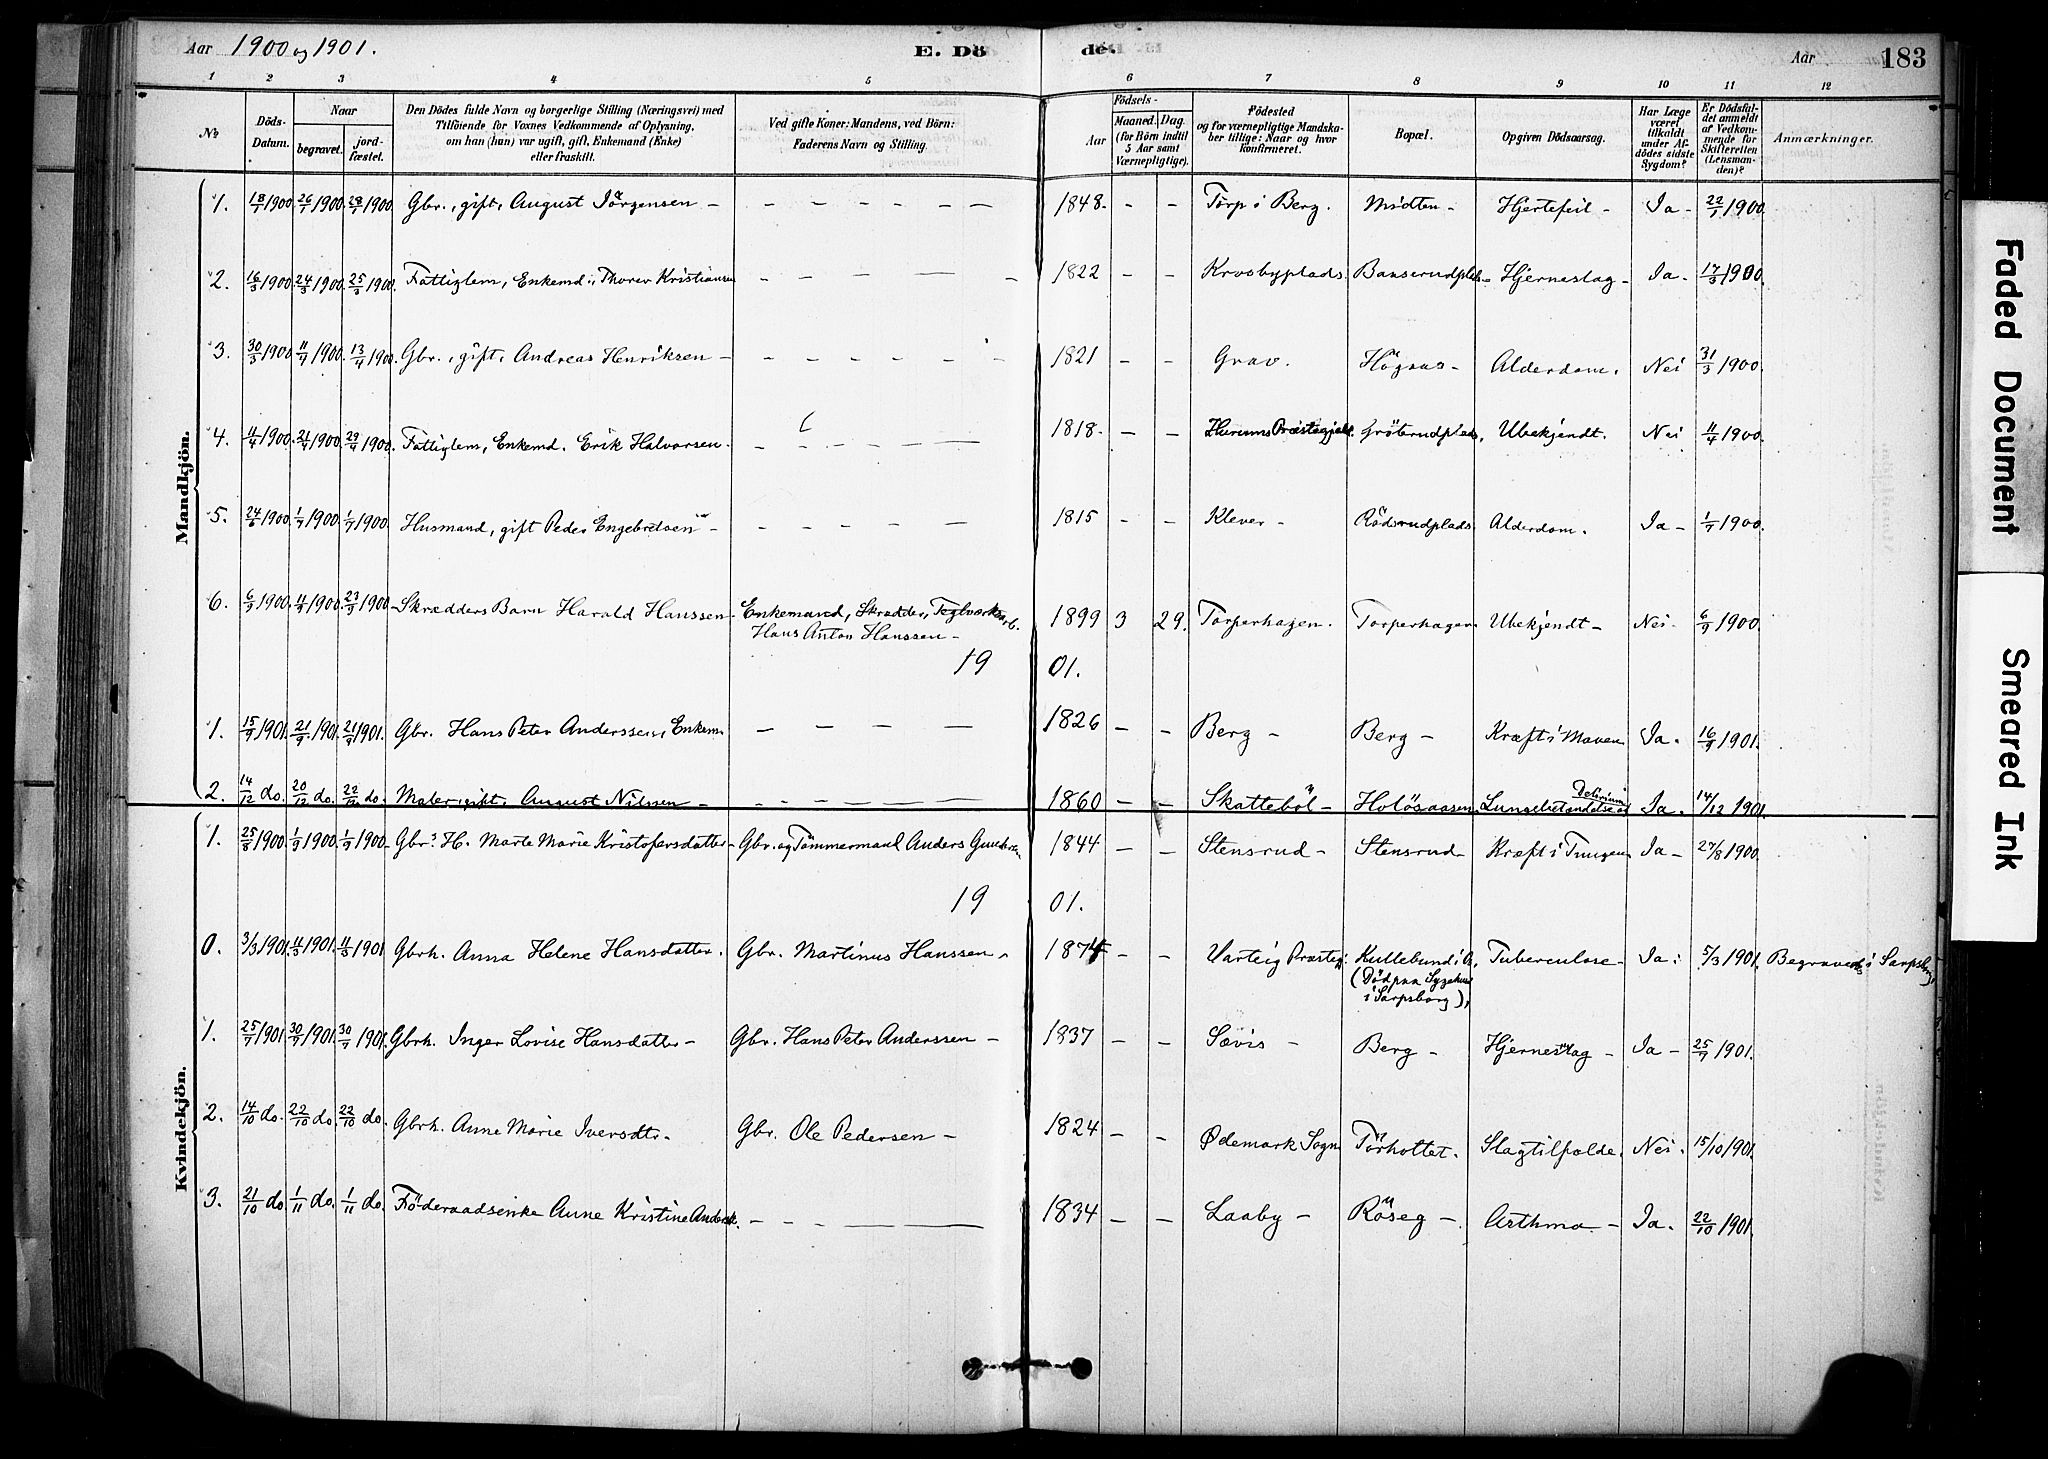 Aar 1900 og 1901. E. Döde. Aar 183
1 2 3 4 5 6 7 8 9 10 11 12
No
Döds-Datum.
Naar
begravet.
jordfæstet.
Den Dödes fulde Navn og borgerlige Stilling (Næringsvei) med
Tilföiende for Voxnes Vedkommende af Oplysning,
om han (hun) var ugift, gift, Enkemand (Enke)
eller fraskilt.
Ved gifte Koner: Mandens, ved Börn:
Faderens Navn og Stilling.
Födsels-
Aar
Maaned. Dag.
(for Börn indtil
5 Aar samt
Værnepligtige).
Födested
og for værnepligtige Mandska-
ber tillige: Naar og hvor
konfirmeret.
Bopæl.
Opgiven Dödsaarsag.
Har Læge
været
tilkaldt
under Af-
dödes sidste
Sygdom?
Er Dödsfal-
det anmeldt
af Vedkom-
mende for
Skifteretten
(Lensman-
den)?
Anmærkninger.
Mandkjön.
1. 18/1 1900 26/1 1900. 28/1 1900. Gbr., gift, August Jörgensen – – – – – – – 1848. – – Torp i Berg. Midten – Hjertefeil – Ja – 22/1 1900.
2. 16/3 1900 24/3 1900. 25/3 1900. Fattiglem, Enkemd., Thorer Kristiansen – – – – – 1822 – – Krosbyplads. Banserudplds – Hjerneslag – Ja – 17/3 1900.
3. 30/3 1900 11/4 1900. 13/4 1900. Gbr., gift, Andreas Henriksen – – – – – – 1821 – – Grav. Högaas – Alderdom. Nei 31/3 1900.
4. 11/4 1900. 21/4 1900. 29/4 1900. Fattiglem, Enkemd. Erik Halvorsen. – – – – – 1818 – – – Hurums Præstegjeld. Gröterudplads. Ubekjendt. Nei 11/4 1900.
5. 24/6 1900. 1/7 1900. 1/7 1900. Husmand, gift Peder Engebretsen – – – – – – 1815 – – Klever – Rödsrudplads. Alderdom. Ja – 1/7 1900.
6. 6/9 1900. 11/9 1900. 23/9 1900 – Skrædders Barn Harald Hanssen. Enkemand, Skrædder, Teglværksarb. 1899 3 29. Torperhagen. Torperhagen. Ubekjendt – Nei. 6/9 1900.
Hans Anton Hanssen –
1901.
1. 15/9 1901. 21/9 1901. 21/9 1901. Gbr. Hans Peter Anderssen, Enkem. – – – – 1826 – – Berg – Berg – Kræft i Maven Ja. 16/9 1901.
2. 14/12 do. 20/12 do. 22/12 do. Maler, gift, August Nilsen – – – – – – 1860 – – Skatteböl – Holösaasen. Lungebetændelse og Delirium Ja. 14/12 1901.
Kvindekjön.
1. 25/8 1900. 1/9 1900. 1/9 1900 – Gbr. H. Marte Marie Kristofersdatter – Gbr. og Tömmermand Anders Gundersen 1844 – – Stensrud – Stensrud – Kræft i Tungen Ja – 27/8 1900.
1901.
0. 3/3 1901. 11/3 1901. 11/3 1901 Gbrh. Anna Helene Hansdatter. Gbr. Martinus Hanssen – 1874 – – Varteig Præsteg. Kullebund i A. Tuberculose – Ja. 5/3 1901. Begravedes i Sarpsborg.
(Död paa Sygehus
i Sarpsborg),
1. 25/7 1901. 30/7 1901. 30/7 1901. Gbrh. Inger Lovise Hansdatter – Gbr. Hans Peter Anderssen – 1837 – – Sævis – Berg – Hjerneslag – Ja – 25/7 1901.
2. 14/10 do. 22/10 do. 22/10 do. Gbrh. Anne Marie Iversdtr. Gbr. Ole Pedersen – 1824 – – Ødemark Sogn Törholtet. Slagtilfælde. Nei. 15/10 1901.
3. 21/10 do. 1/11 do. 1/11 do. Föderaadsenke Anne Kristine Andersdt. – – – – – 1834 – – Laaby – Röseg – Asthma – Ja. 22/10 1901.
Faded Document
Smeared Ink